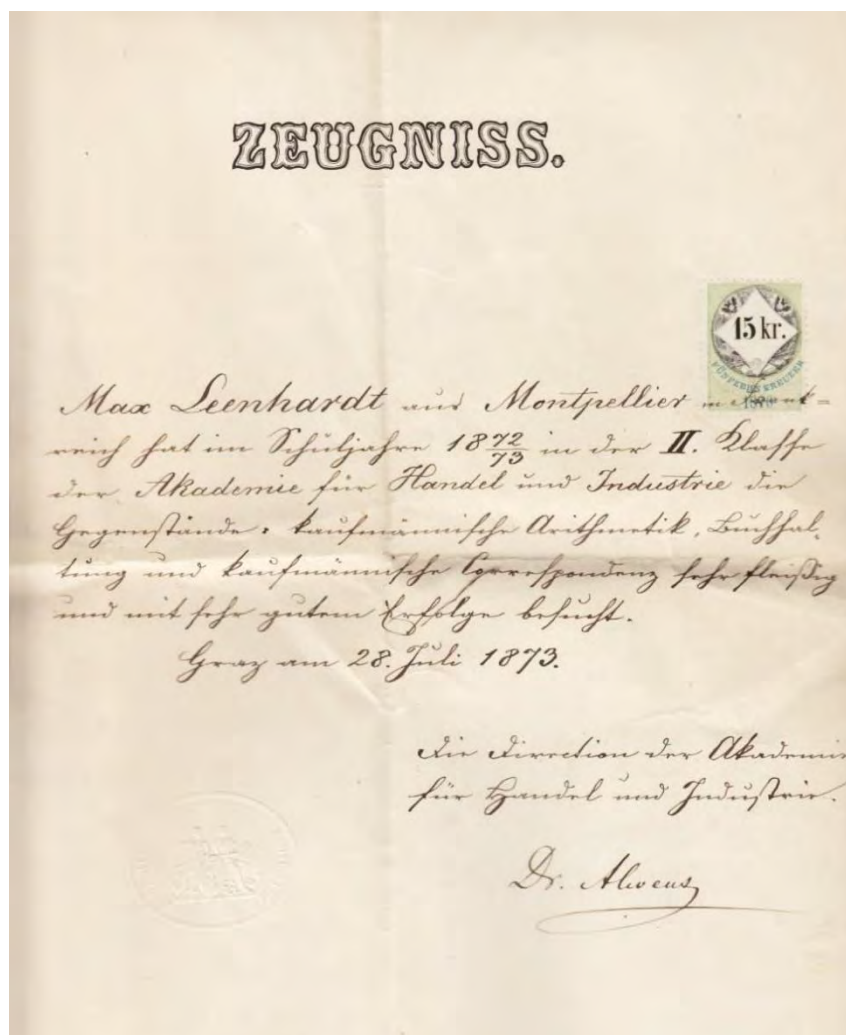 ZEUGNISS.
15 kr.
FÜNFZEHN KREUZER
1870
Max Leenhardt aus Montpellier in Frank=
reich hat im Schuljahre 1872/73 in der II. Klasse
der Akademie für Handel und Industrie die
Gegenstände: kaufmännische Arithmetik, Buchhal-
tung und kaufmännische Correspondenz sehr fleißig
und mit sehr gutem Erfolge besucht.
Graz am 28. Juli 1873.
Die Direction der Akademie
für Handel und Industrie.
Dr. Alwens